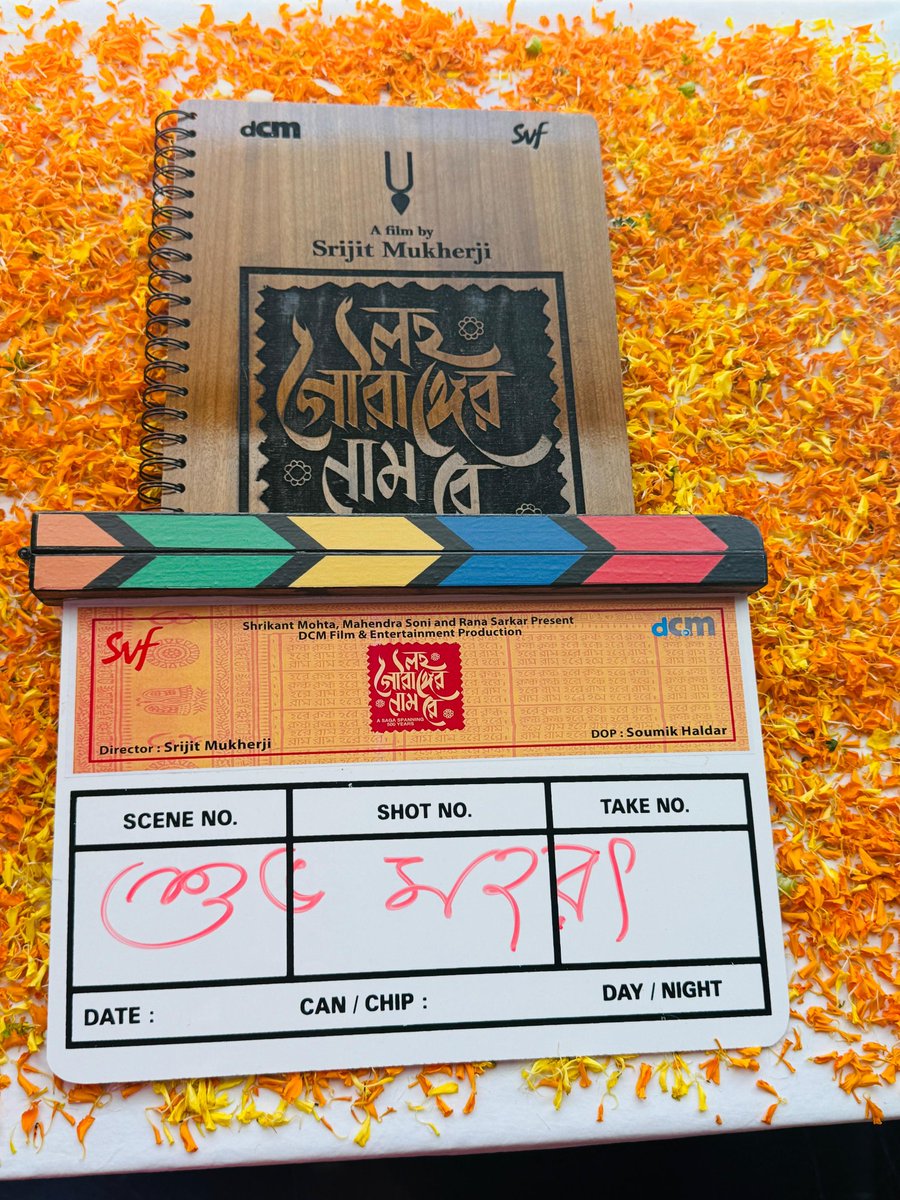 dcm
svf
A film by
Srijit Mukherji
লহ
গৌরাঙ্গের
নাম রে
Shrikant Mohta, Mahendra Soni and Rana Sarkar Present
DCM Film & Entertainment Production
svf
dcm
লহ
গৌরাঙ্গের
নাম রে
A SAGA SPANNING
500 YEARS
Director : Srijit Mukherji
DOP : Soumik Haldar
SCENE NO. SHOT NO. TAKE NO.
শুভ মহরৎ
DATE : CAN / CHIP : DAY / NIGHT